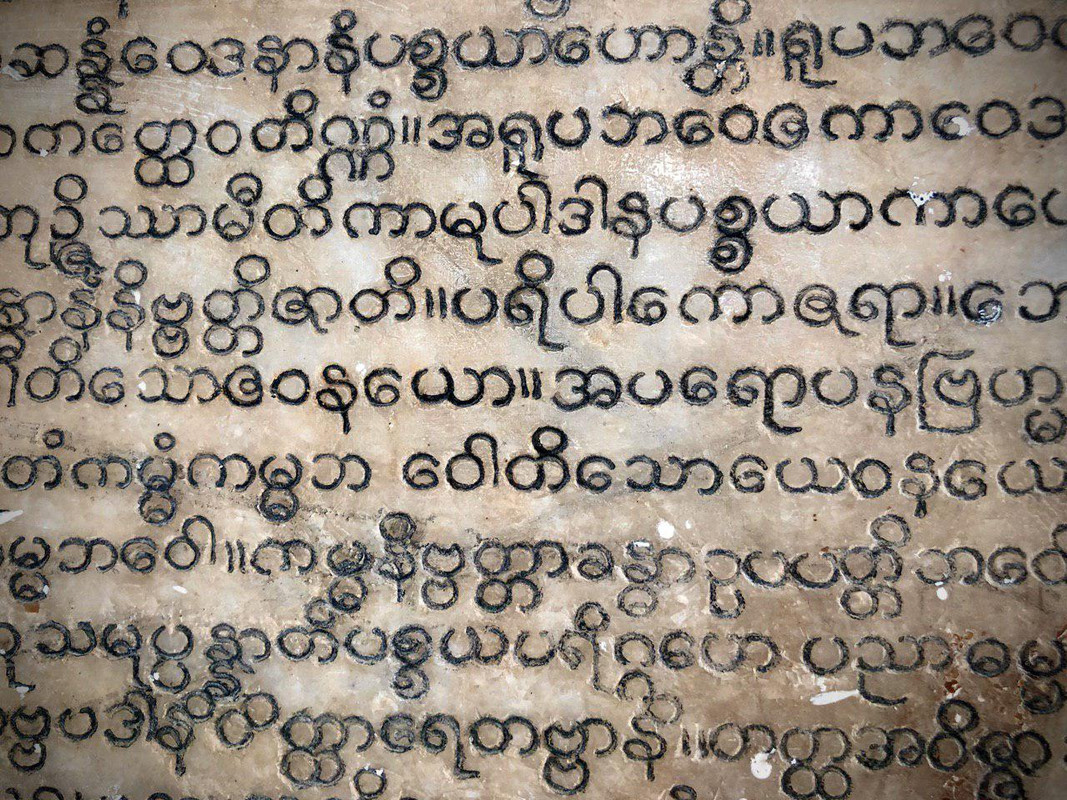 ဆန္နံဝေဒနာနံပစ္စယာဟောန္တိ။ရူပဘဝေ
တတ္ထေဝတိဏ္ဏံ။အရူပဘဝေဧကာဝေဒ
ဉ္ဇိဿာမီတိကာမုပါဒါနပစ္စယာကာယေ
န္ဓာနံနိဗ္ဗတ္တိဇာတိ။ပရိပါကောဇရာ။ဘေ
တိသောဧဝနယော။အပရောပနဗြဟ္မ
တံကမ္မံကမ္မဘဝေါတိသောယေဝနယေ
မ္မဘဝေါ။ကမ္မနိဗ္ဗတ္တာခန္ဓာဥပပတ္တိဘဝေါ
သမုပ္ပန္နာတိပစ္စယပရိဂ္ဂဟေ ပညာဓမ္မ
ဗ္ဗပဒါနိဝိတ္ထာရေတဗ္ဗာနိ။တတ္ထအဝိဇ္ဇ